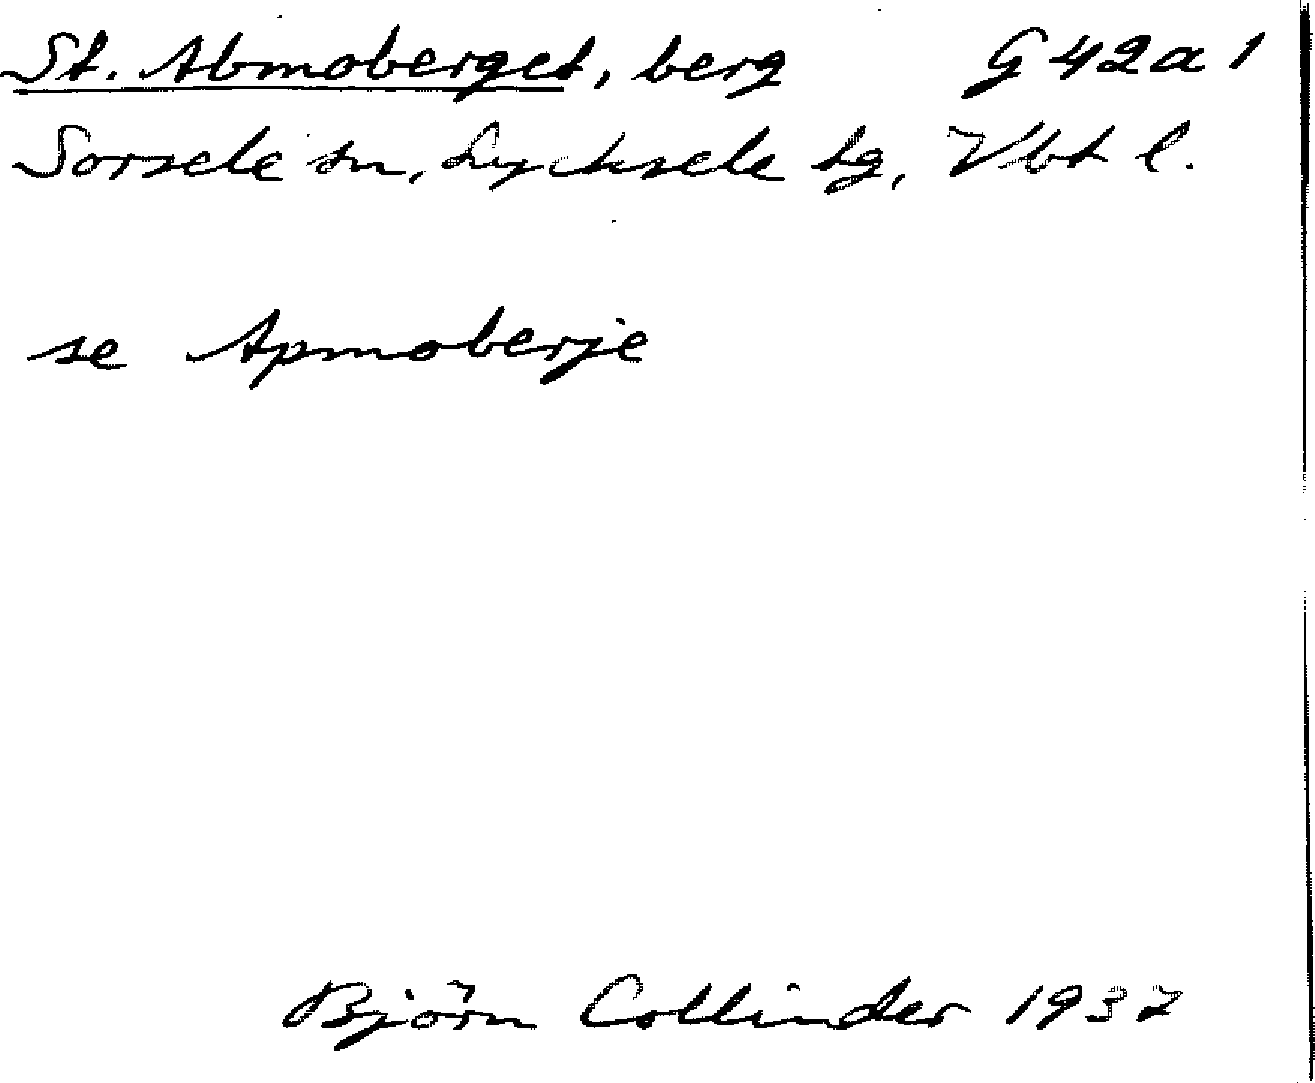 St. Abmoberget, berg G 42 a 1
Sorsele sn, Lycksele tg, Vbt l.
se Apmoberje
Björn Collinder 1937